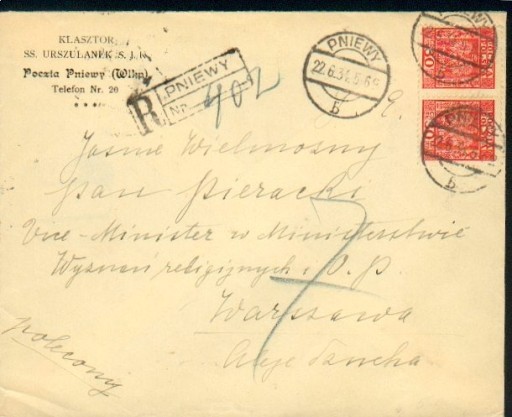 KLASZTOR
SS. URSZULANEK S. J. K.
Poczta Pniewy (Wlkp.)
Telefon Nr. 20
R
PNIEWY
NR. 402
PNIEWY
22.6.34.
b
PNIEWY
b
Jaśnie Wielmożny
Pan Pieracki
Vice-Minister w Ministerstwie
Wyznań religijnych i O. P.
Warszawa
Aleje Szucha
polecony
7